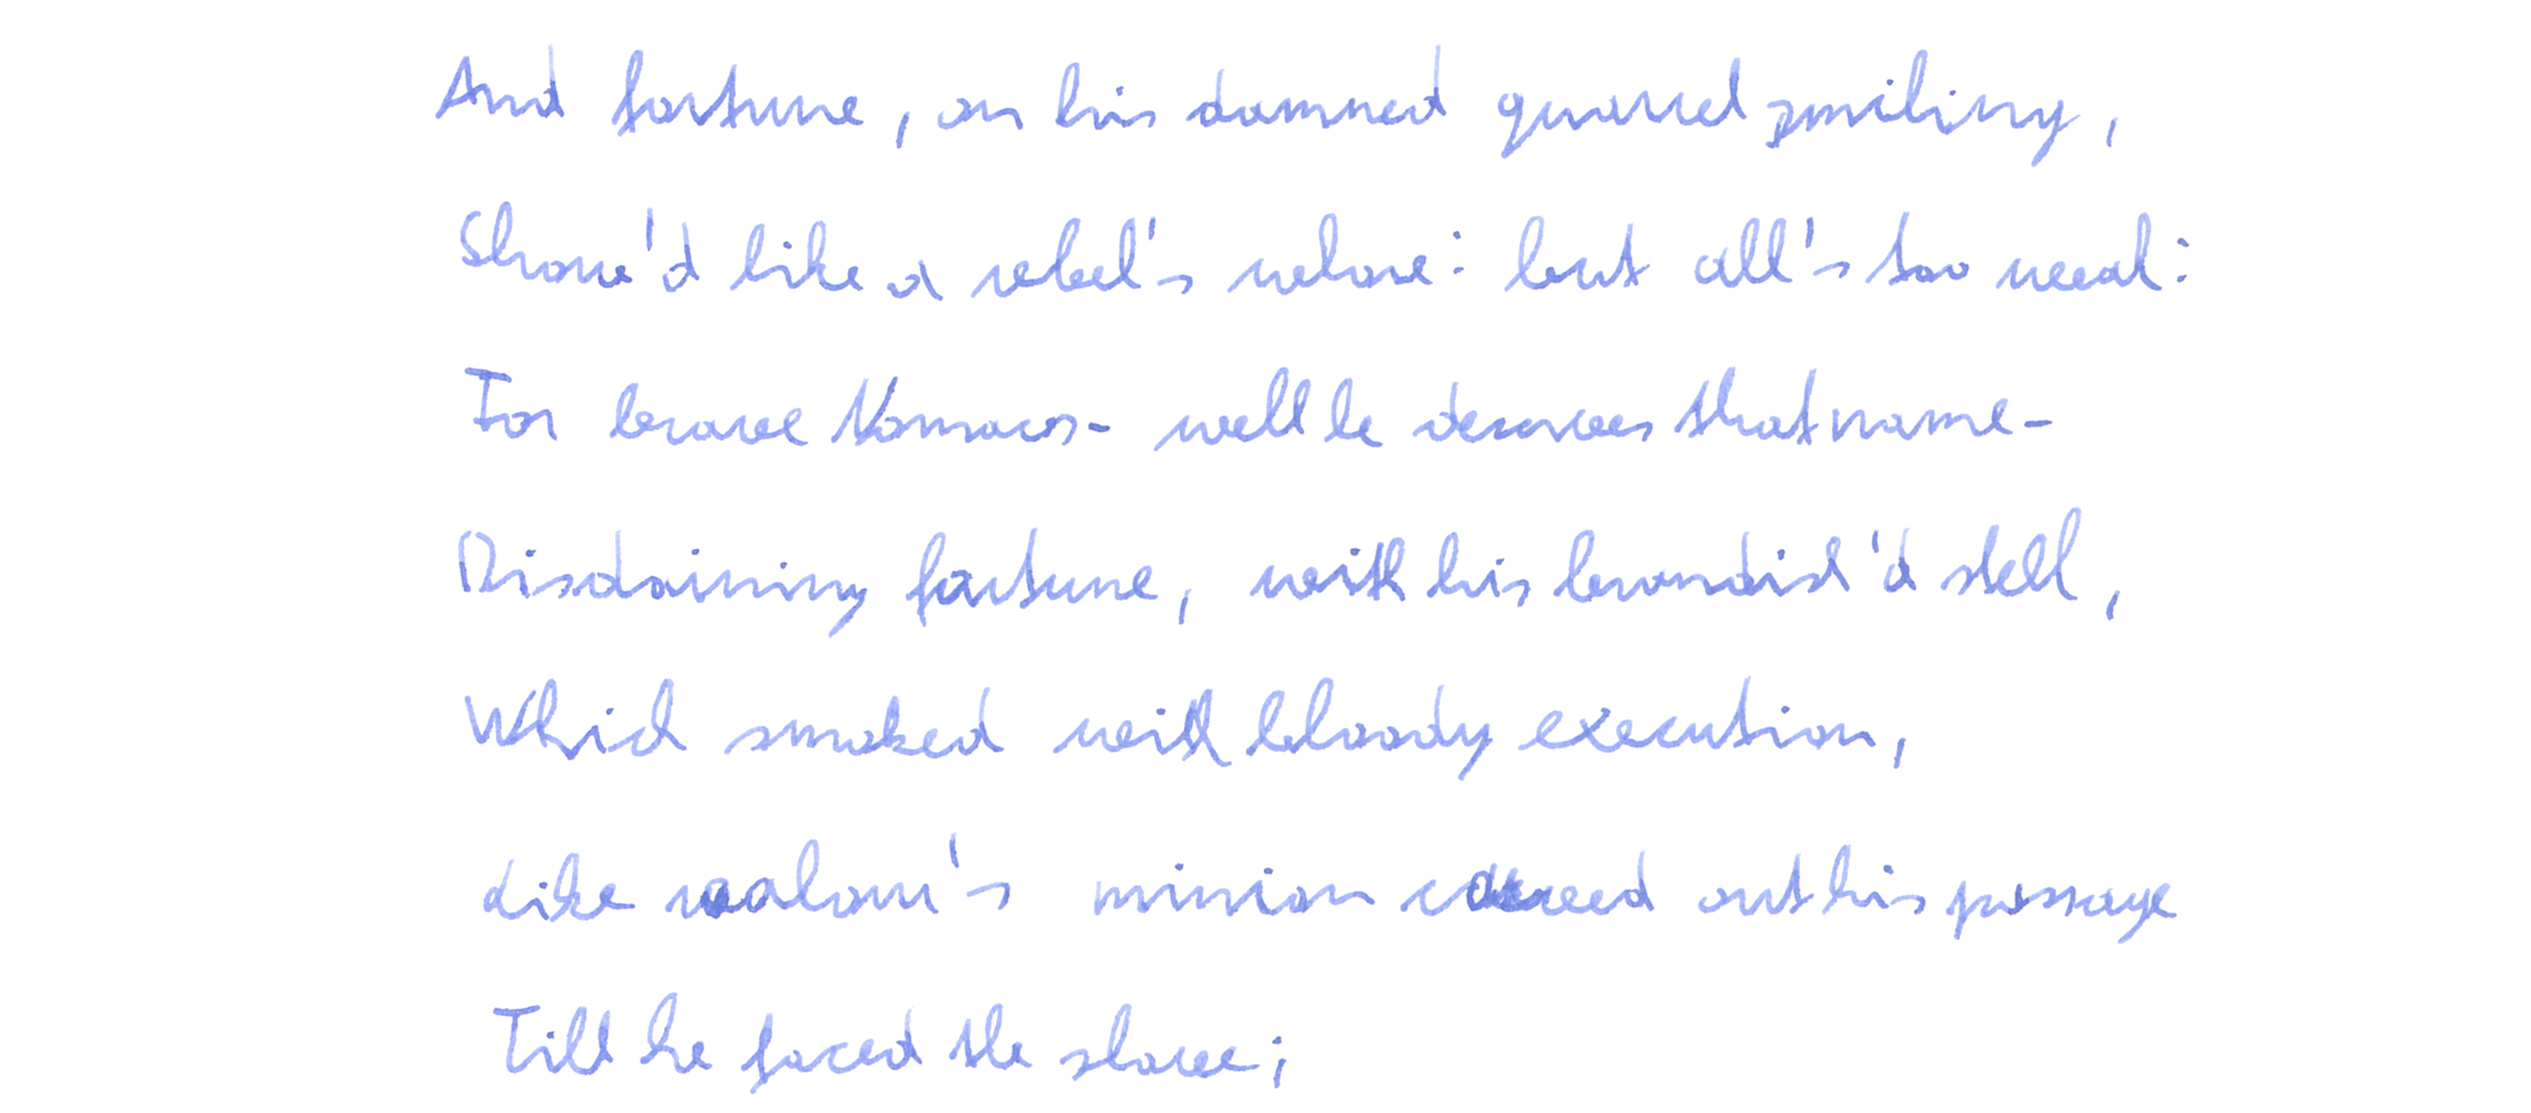 And fortune, on his damned quarrel smiling,
Show'd like a rebel's whore: but all's too weak:
For brave - well he deserves that name-
Disdaining fortune, with his brandish'd stell,
Which smoked with bloody execution,
Like valour's minion carved out his passage
Till he faced the slave;